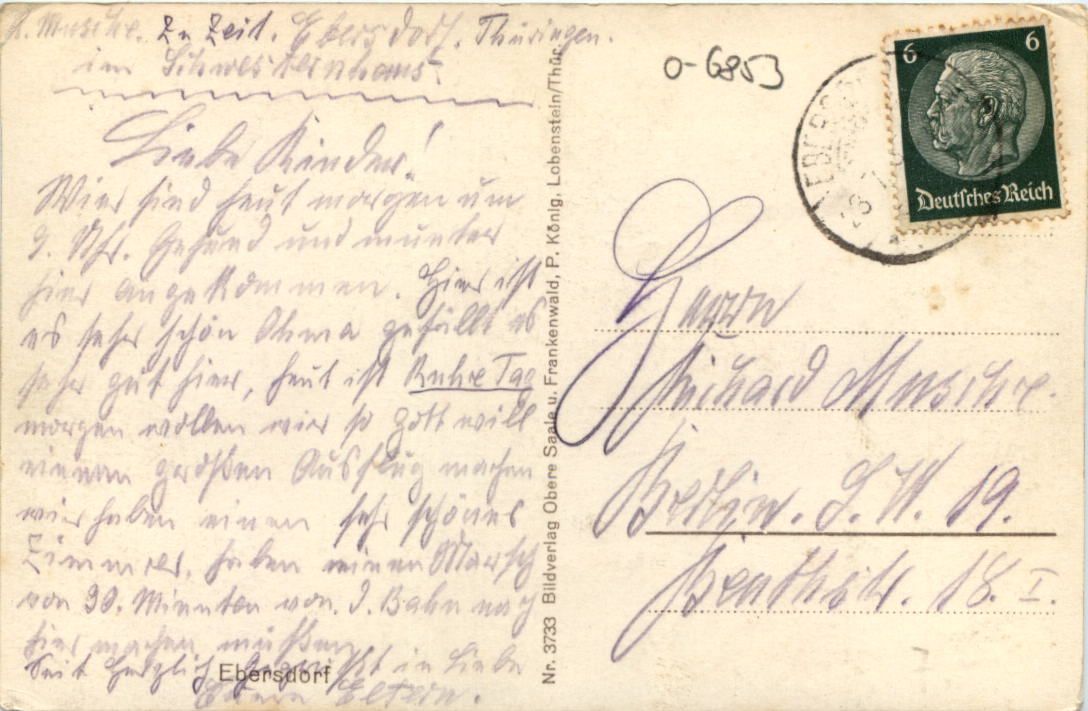 R. Muschke. Zu Zeit. Ebersdorf. Thüringen.
im Schwesternhaus.
Liebe Kinder!
Wier sind heut morgen um
9. Uhr. Gesund und munter
hier angekommen. Hier ist
es sehr schön Ohma gefällt es
sehr gut hier, heut ist Ruhe Tag
morgen wollen wier so Gott will
einen großen Ausflug machen
wier haben einen sehr schönes
Zimmer, haben einen Marsch
von 30. Minuten von d. Bahn nach
hier machen müßen
Seit herzlich Gegrüßt in Liebe
Euere Eltern.
Ebersdorf
Nr. 3733 Bildverlag Obere Saale u. Frankenwald, P. König, Lobenstein/Thür.
0-6853
6 6
Deutsches Reich
Herrn
Richard Muschke.
Berlin. S. W. 19.
Beuthstr. 18. I.